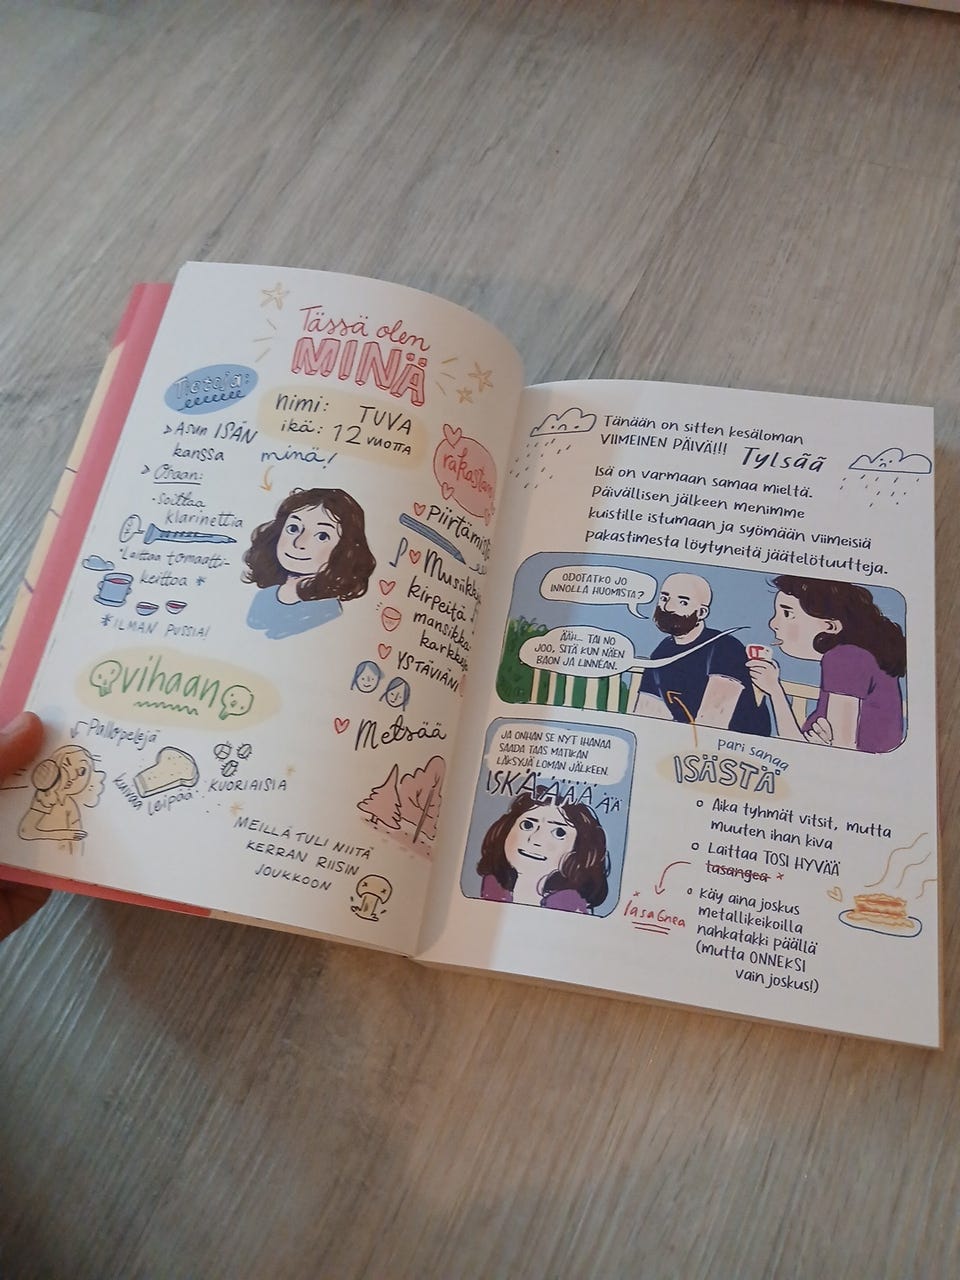 Tässä olen
MINÄ
Tietoja:
> Asun ISÄN
kanssa
> Osaan:
- soittaa
klarinettia
*Laittaa tomaatti-
keittoa *
*ILMAN PUSSIA!
nimi: TUVA
ikä: 12 VUOTTA
minä!
rakastan
Piirtämistä
Musiikkia
kirpeitä
mansikka-
karkkeja
YSTÄVIÄNI
Metsää
vihaan
Pallopelejä
kuivaa leipää
KUORIAISIA
MEILLÄ TULI NIITÄ
KERRAN RIISIN
JOUKKOON
Tänään on sitten kesäloman
VIIMEINEN PÄIVÄ!!! Tylsää
Isä on varmaan samaa mieltä.
Päivällisen jälkeen menimme
kuistille istumaan ja syömään viimeisiä
pakastimesta löytyneitä jäätelötuutteja.
ODOTATKO JO
INNOLLA HUOMISTA?
ÄÄH... TAI NO
JOO, SITÄ KUN NÄEN
BAON JA LINNÉAN.
JA ONHAN SE NYT IHANAA
SAADA TAAS MATIKAN
LÄKSYJÄ LOMAN JÄLKEEN.
ISKÄÄÄÄÄÄ
pari sanaa
ISÄSTÄ
o Aika tyhmät vitsit, mutta
muuten ihan kiva
o Laittaa TOSI HYVÄÄ
tasangea ×
lasagnea
o Käy aina joskus
metallikeikoilla
nahkatakki päällä
(mutta ONNEKSI
vain joskus!)